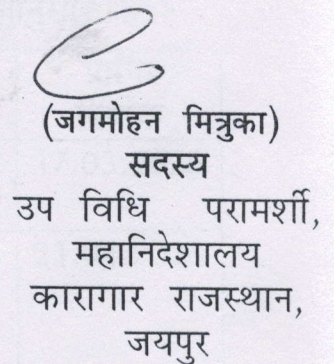 (जगमोहन मित्रुका)
सदस्य
उप विधि परामर्शी,
महानिदेशालय
कारागार राजस्थान,
जयपुर